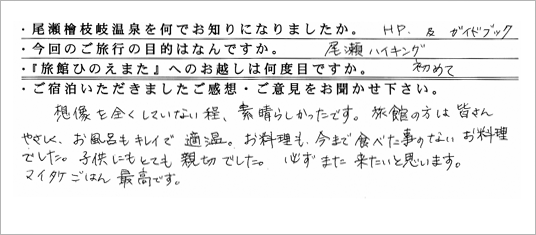 ・尾瀬檜枝岐温泉を何でお知りになりましたか。 HP. & ガイドブック
・今回のご旅行の目的はなんですか。 尾瀬ハイキング
・『旅館ひのえまた』へのお越しは何度目ですか。 初めて
・ご宿泊いただきましたご感想・ご意見をお聞かせ下さい。
想像を全くしていない程、素晴らしかったです。旅館の方は皆さん
やさしく、お風呂もキレイで適温。お料理も、今まで食べた事のないお料理
でした。子供にもとても親切でした。必ずまた来たいと思います。
マイタケごはん最高です。